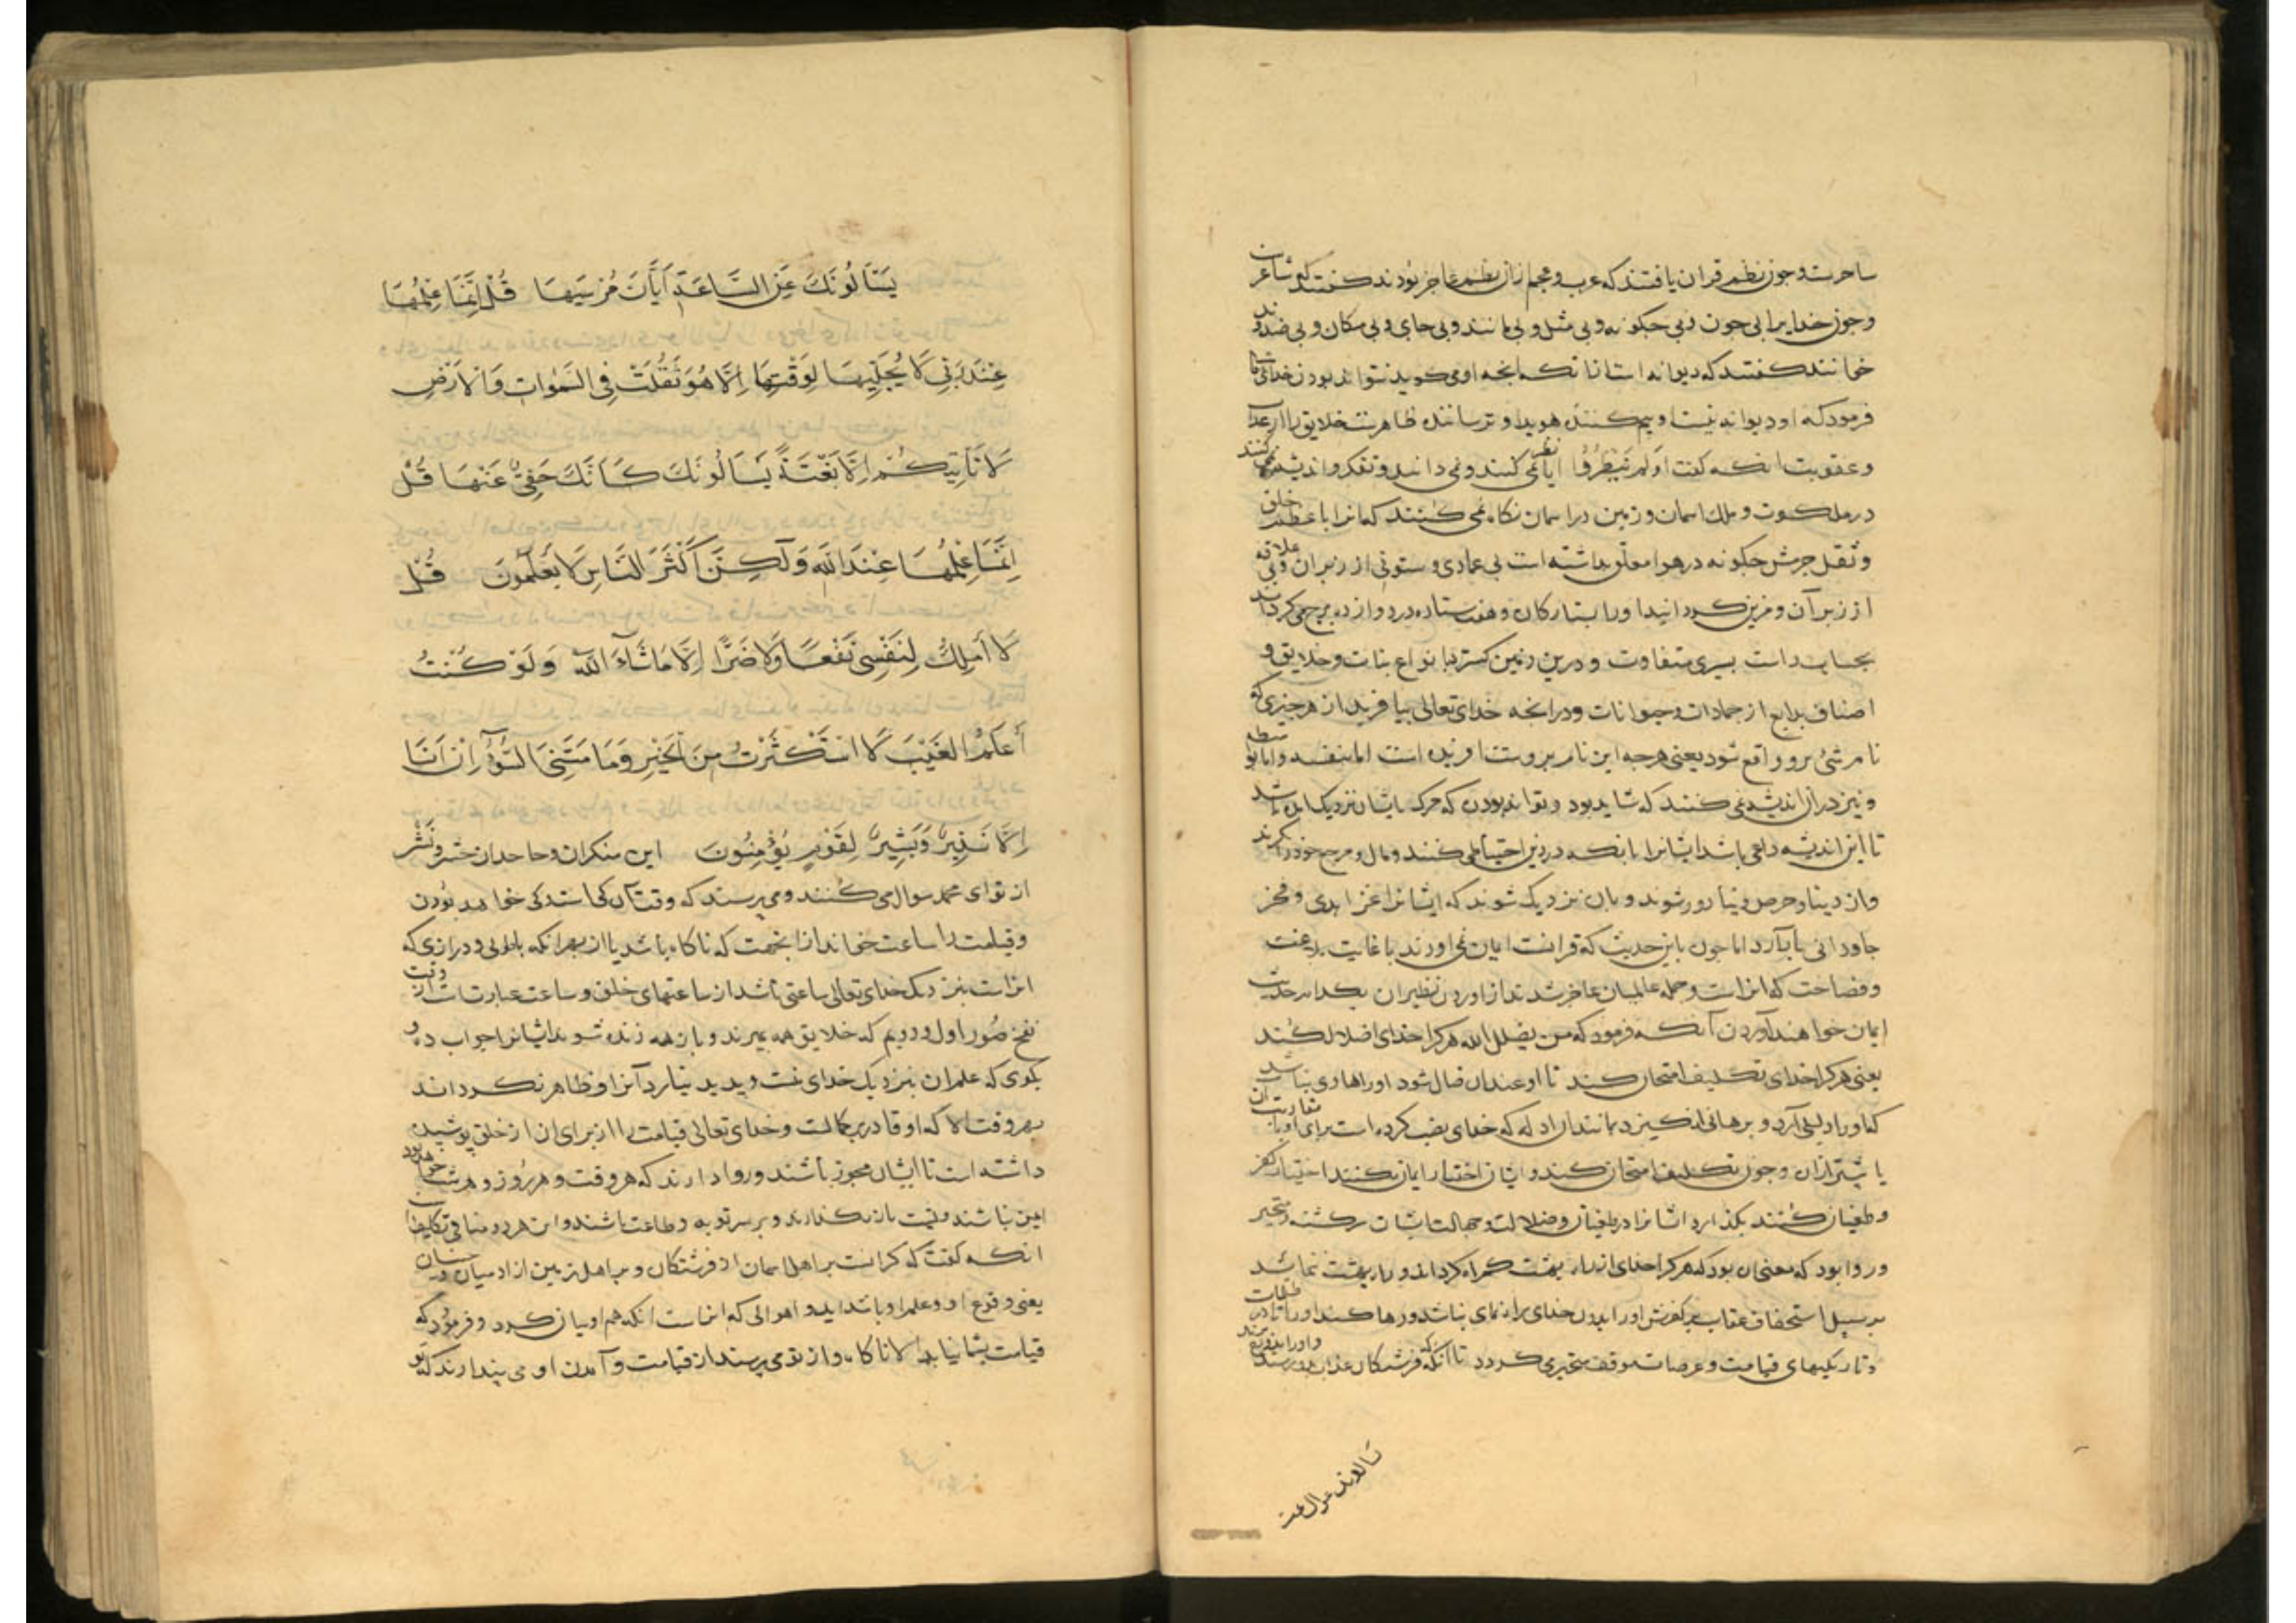 ساحرست و چون نظم قران یافتند که عرب و عجم از ان نظم عاجز بودند گفتند که شاعرست
و چون خدایرا بی چون و بی چگونه و بی مثل و بی مانند و بی جای و بی مکان و بی ضد و ند
خواندند گفتند که دیوانه است از انکه انچه او می کوید نتواند بودن خدای تعالی
فرمود که او دیوانه نیست او بیم کننده هویدا و ترساننده ظاهرست خلایق را از عذاب
و عقوبت انکه کفت اولم ینظروا ایا نظر نمی کنند و نمی دانند و تفکر و اندیشه نمی کنند
در ملکوت و ملک اسمان و زمین در اسمان نکاه نمی کنند که انرا با عظم خلق
و ثقل جرمش چکونه در هوا معلق بداشته است بی عمادی و ستونی از زیر ان و بی علاقه
از زبر آن و مزین کردانید اورا بستارکان و هفت ستاره در دوازده برج می کرداند
بحساب راست بسیری متفاوت و درین زمین کسترد با نواع نبات و خلایق و
اصناف بدایع از جمادات و حیوانات و در انچه خدای تعالی بیافرید از هر چیزی که
نام شیء برو واقع شود یعنی هرچه این نام بروست افریده است اما بنفسه و اما بواسطه
و نیز در ان اندیشه نمی کنند که شاید بود و تواند بودن که مرک ایشان نزدیک امده باشد
تا این اندیشه داعی باشد ایشانرا بانکه در دین احتیاط می کنند و مال و مرجع خود را نکرند
و از دنیا و حرص دنیا دور شوند و بان نزدیک شوند که ایشانرا عز ابدی و فخر
جاودانی بار آرد اما چون باین حدیث که قرانست ایمان نمی اورند با غایت بلاغت
و فصاحت که انراست و جمله عالمیان عاجز شدند از اوردن نظیر ان بکدام حدیث
ایمان خواهند آوردن آنکه فرمود که من یضلل الله هرکرا خدای اضلال کند
یعنی هرکرا خدای تکلیف امتحان کند تا او عند ان ضال شود اورا هادی نباشد
که اورا دلیلی آرد و برهانی انکیزد مانند ان ادله که خدای نصب کرده است برای او با مقاربت ان
یا پیشتر ازان و چون تکلیف امتحان کند و ایشان اختیار ایمان نکنند اختیار کفر
و طغیان کنند بکذارد ایشانرا در طغیان و ضلالت و جهالت ایشان سرکشته و متحیر
و روا بود که معنی ان بود که هرکرا خدای از راه بهشت کمراه کرداند و راه بهشت ننماید
بر سبیل استحقاق عقاب بر کفرش اورا بدون خدای راه نمای نباشد و رها کند اورا تا در ظلمات
و تاریکیهای قیامت و عرصات موقف متحیر می کردد تا انکه فرشتکان عذاب بدو رسند و اورا بدوزخ برند
یسالونک عن الساعة
یَسْأَلُونَكَ عَنِ السَّاعَةِ أَیَّانَ مُرْسَیهَا قُلْ إِنَّمَا عِلْمُهَا
عِنْدَ رَبِّی لَا یُجَلِّیهَا لِوَقْتِهَا إِلَّا هُوَ ثَقُلَتْ فِی السَّمٰوَاتِ وَالْاَرْضِ
لَا تَأْتِیكُمْ إِلَّا بَغْتَةً یَسْأَلُونَكَ كَأَنَّكَ حَفِیٌّ عَنْهَا قُلْ
إِنَّمَا عِلْمُهَا عِنْدَ اللَّهِ وَلٰكِنَّ أَكْثَرَ النَّاسِ لَا یَعْلَمُونَ قُلْ
لَا أَمْلِكُ لِنَفْسِی نَفْعًا وَلَا ضَرًّا إِلَّا مَا شَآءَ اللَّهُ وَلَوْ كُنْتُ
أَعْلَمُ الْغَیْبَ لَاسْتَكْثَرْتُ مِنَ الْخَیْرِ وَمَا مَسَّنِیَ السُّوٓءُ إِنْ أَنَا
إِلَّا نَذِیرٌ وَبَشِیرٌ لِقَوْمٍ یُؤْمِنُونَ این منکران و جاحدان حشر و نشر
از تو ای محمد سوال می کنند و می پرسند که وقت آن کی است و کی خواهد بودن
و قیامت را ساعت خواند از انجهت که ناکاه باشد یا از بهر انکه با طولی و درازی که
انراست بنزدیک خدای تعالی ساعتی باشد از ساعتهای خلق و ساعت عبارتست از وقت
نفخ صور اول و دویم که خلایق همه بمیرند و باز همه زنده شوند ایشانرا جواب ده و
بکوی که علم ان بنزدیک خدای منست و پدید نیارد آنرا و ظاهر نکرداند
بهر وقت الا که او قادر بر کمالست و خدای تعالی قیامت را از برای ان از خلق پوشیده
داشته است تا ایشان مجوز باشند و روا دارند که هر وقت و هر روز و هر شب خواهد بود
ایمن نباشند و توبت باز نکذارند و بر سر توبه و طاعت باشند و این هر دو منافی تکلیف است
انکه کفت که کرانست بر اهل اسمان از فرشتکان و بر اهل زمین از ادمیان و جنیان
یعنی وقوع او و علم او با شداید و اهوالی که انراست انکه هم او بیان کرد و فرمود که
قیامت بشما نیاید الا ناکاه و از تو می پرسند از قیامت و آمدن او می پندارند که تو